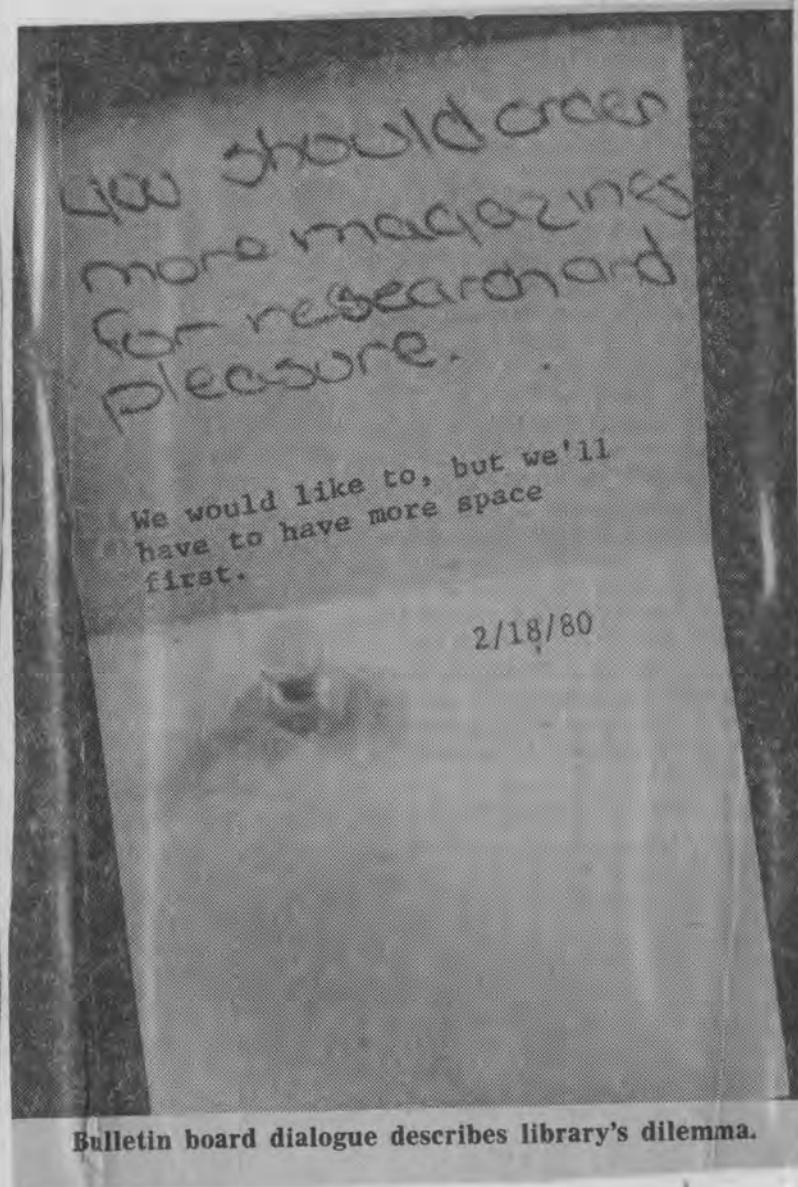 you should order
more magazines
for research and
pleasure.
We would like to, but we'll
have to have more space
first.
2/18/80
Bulletin board dialogue describes library's dilemma.